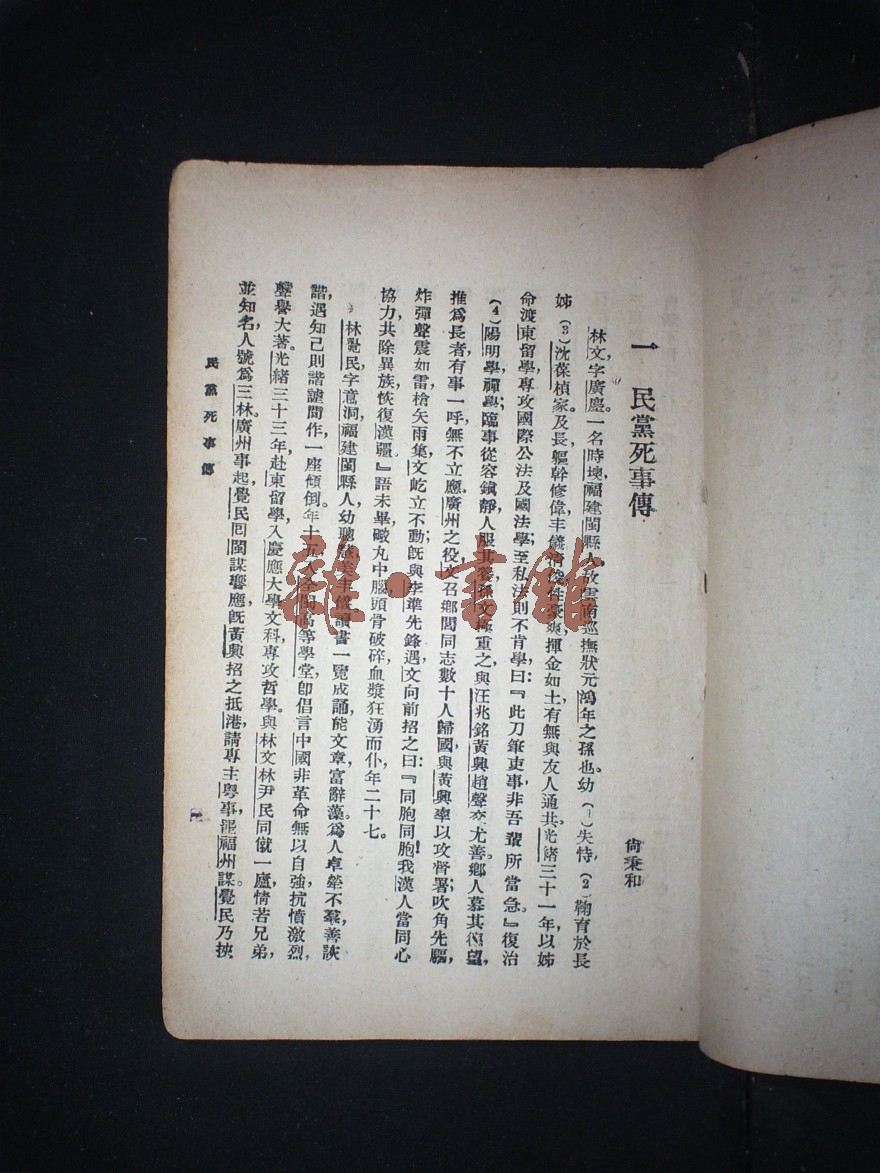 一 民黨死事傳
尙秉和
林文，字廣塵。一名時塽，福建閩縣人。故雲南巡撫狀元鴻年之孫也。幼（1）失恃，（2）鞠育於長
姊（3）沈葆楨家。及長，軀幹修偉，丰儀清俊，性豪爽，揮金如土，有無與友人通共。光緒三十一年，以姊
命渡東留學，專攻國際公法及國法學；至私法則不肯學，曰：『此刀筆吏事，非吾輩所當急。』復治
（4）陽明學，禪學；臨事從容鎮靜，人服其養。孫文極重之，與汪兆銘黃興趙聲交尤善。鄉人慕其德望，
推爲長者，有事一呼，無不立應。廣州之役，文召鄉閭同志數十人歸國，與黃興率以攻督署；吹角先驅，
炸彈聲震如雷，槍矢雨集，文屹立不動。旣與李準先鋒遇，文向前招之曰：『同胞同胞！我漢人當同心
協力，共除異族，恢復漢疆。』語未畢，礮丸中腦，頭骨破碎，血漿狂湧而仆，年二十七。
林覺民，字意洞，福建閩縣人。幼聰慧，美丰儀，讀書一覽成誦，能文章，富辭藻。爲人卓犖不羣，善詼
諧，遇知己則諧謔間作，一座傾倒。年十五，入全閩高等學堂，卽倡言中國非革命無以自強，抗憤激烈，
聲譽大著。光緒三十三年，赴東留學，入慶應大學文科，專攻哲學。與林文林尹民同僦一廬，情若兄弟，
並知名，人號爲三林。廣州事起，覺民囘閩謀響應，旣黃興招之抵港，請專主粵事，罷福州謀。覺民乃挾
民黨死事傳
龍·書館